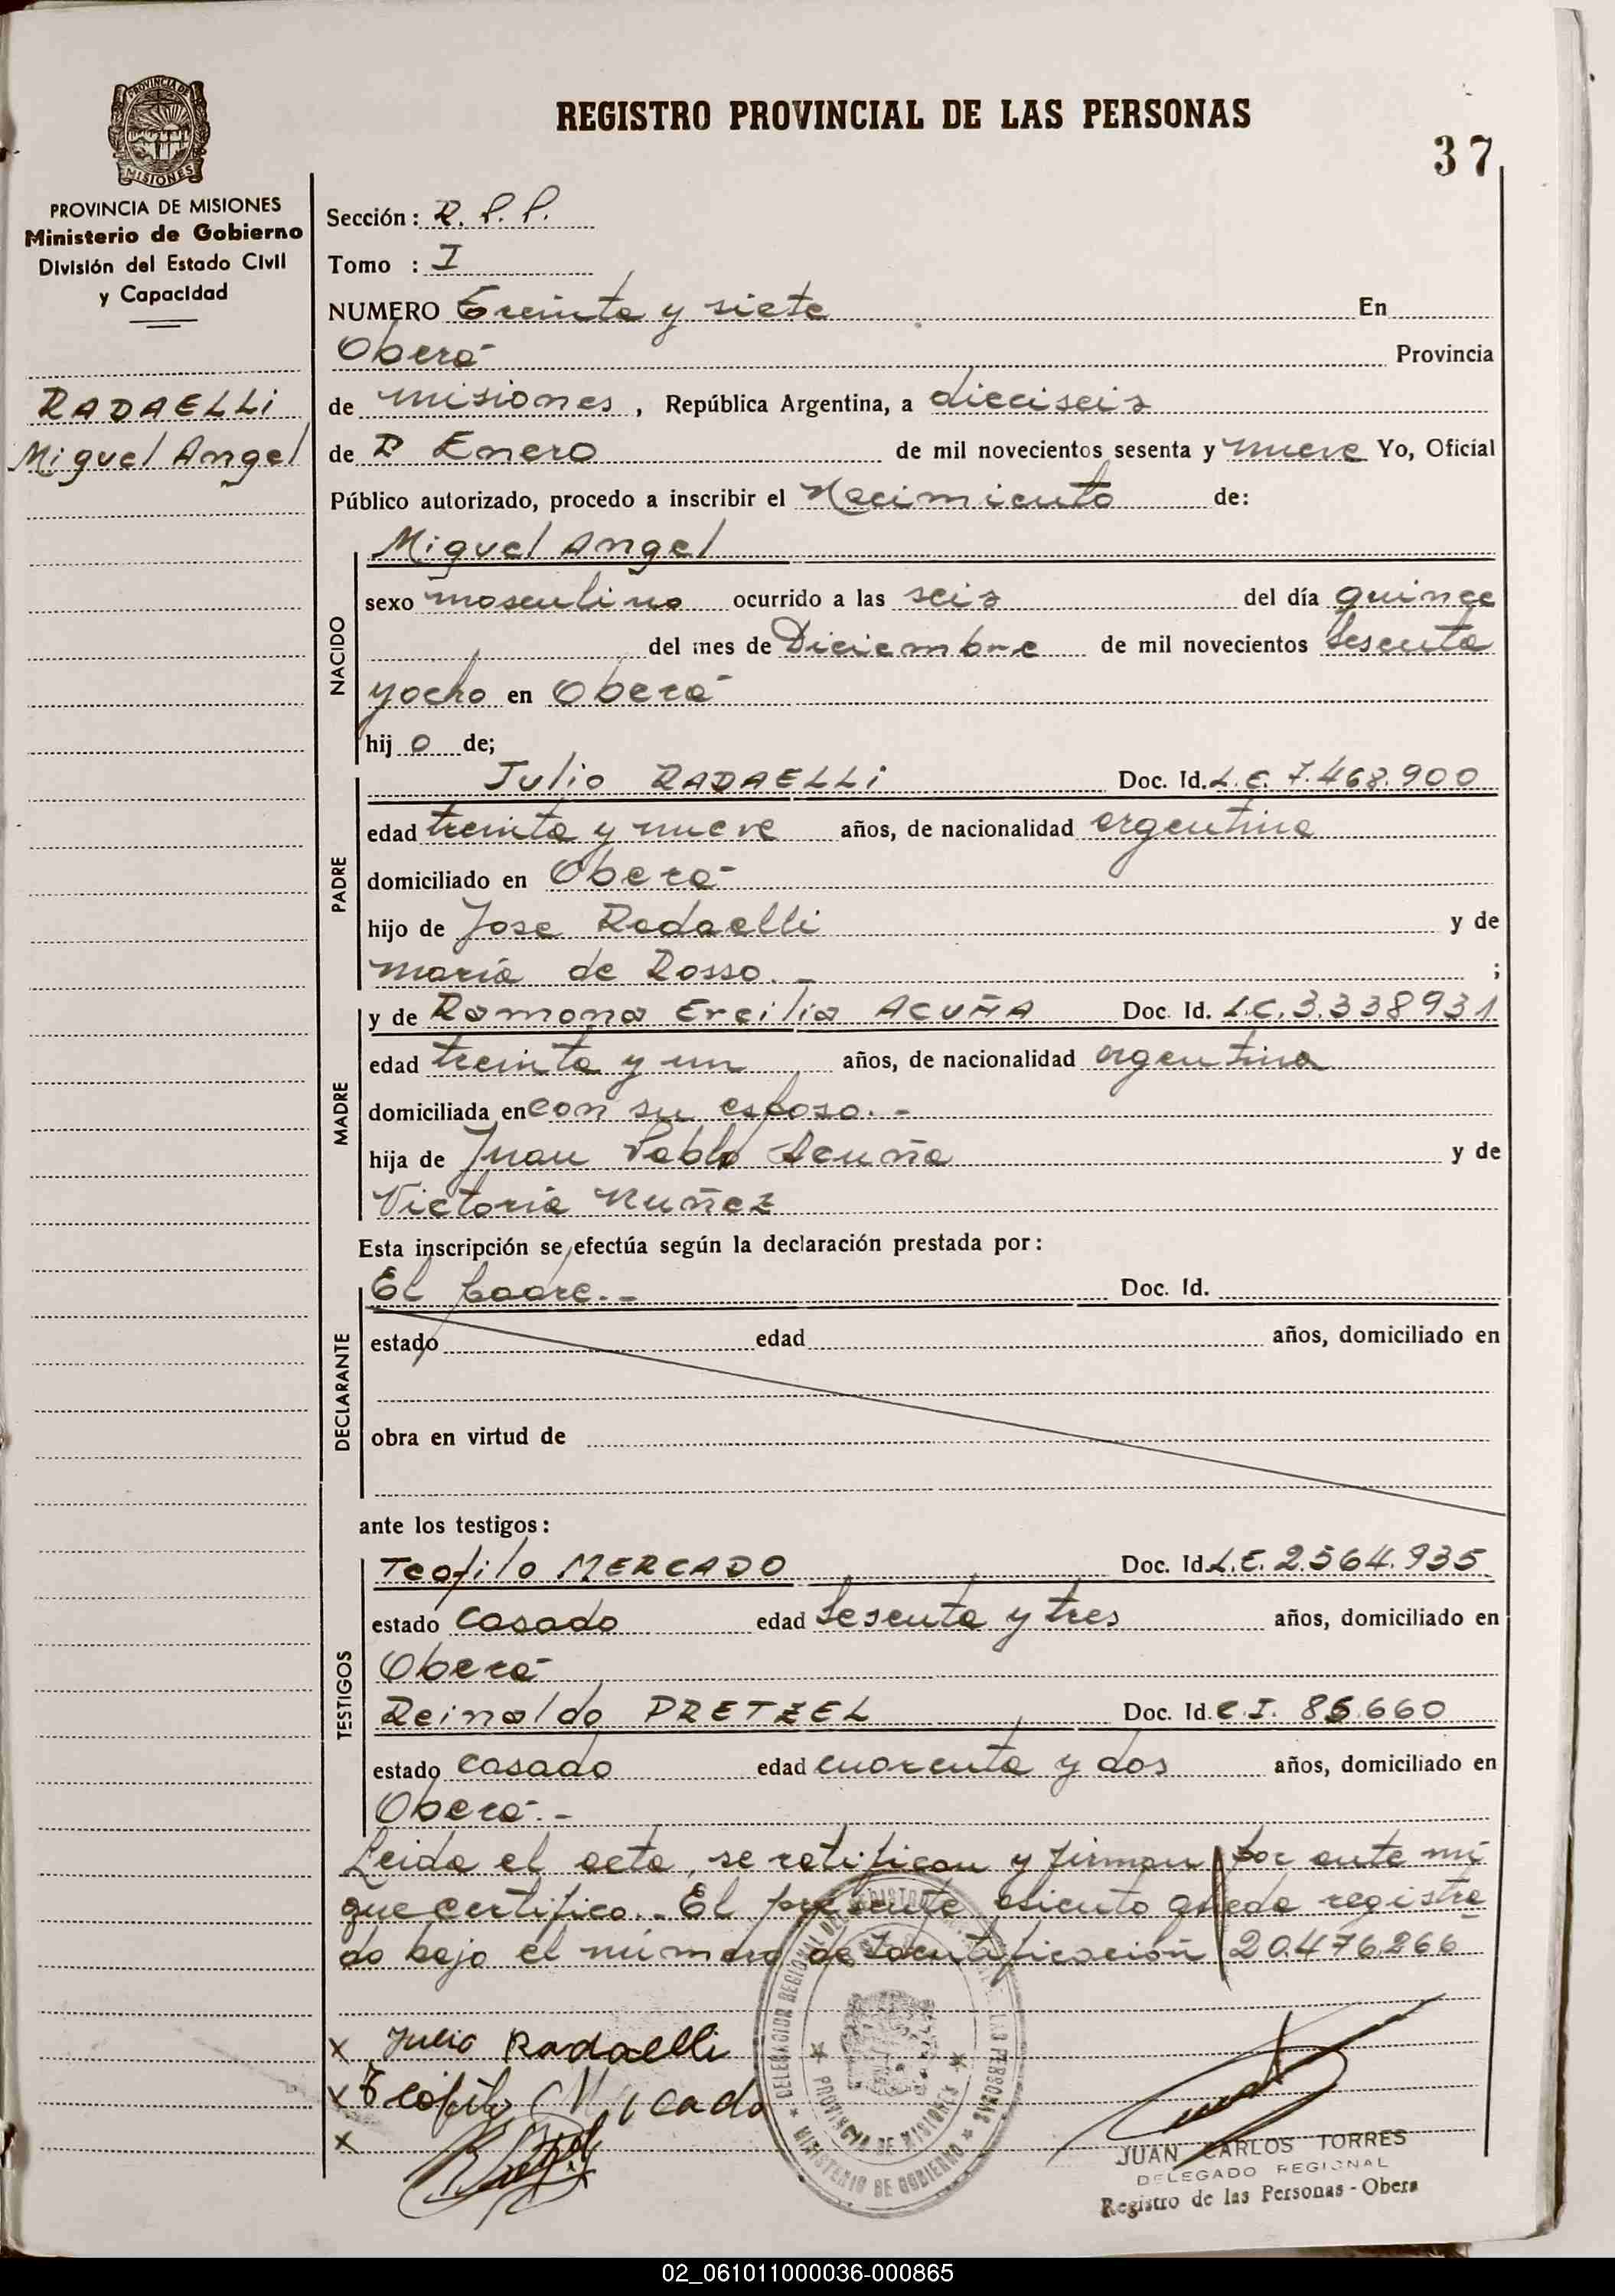 REGISTRO PROVINCIAL DE LAS PERSONAS
37
PROVINCIA DE MISIONES
PROVINCIA DE MISIONES
Ministerio de Gobierno
División del Estado Civil
y Capacidad
RADAELLI
Miguel Angel
Sección: R. P. P.
Tomo : I
NUMERO Treinta y siete En
Oberá Provincia
de misiones, República Argentina, a dieciseis
de Enero de mil novecientos sesenta y nueve Yo, Oficial
Público autorizado, procedo a inscribir el Nacimiento de:
Miguel Angel
NACIDO
sexo masculino ocurrido a las seis del día quince
del mes de Diciembre de mil novecientos sesenta
y ocho en Oberá
hij o de;
PADRE
Julio RADAELLI Doc. Id. L.E. 7.468.900
edad treinta y nueve años, de nacionalidad argentina
domiciliado en Oberá
hijo de Jose Radaelli y de
María de Rosso. - ;
MADRE
y de Ramona Ercilia ACUÑA Doc. Id. L.C. 3.338931
edad treinta y un años, de nacionalidad argentina
domiciliada en con su esposo. -
hija de Juan Pablo Acuña y de
Victoria Nuñez
Esta inscripción se efectúa según la declaración prestada por:
DECLARANTE
El padre. - Doc. Id.
estado edad años, domiciliado en
obra en virtud de
ante los testigos:
TESTIGOS
Teofilo MERCADO Doc. Id. L.E. 2.564.935
estado casado edad sesenta y tres años, domiciliado en
Oberá
Reinaldo PRETZEL Doc. Id. C.I. 86.660
estado casado edad cuarenta y dos años, domiciliado en
Oberá. -
Leida el acta, se ratifican y firman por ante mí
que certifico. - El presente asiento queda registra
do bajo el número de Identificación 20.476.266
x Julio Radaelli
x Teófilo Mercado
x
DELEGACION REGIONAL DEL REGISTRO DE LAS PERSONAS
PROVINCIA DE MISIONES
MINISTERIO DE GOBIERNO
JUAN CARLOS TORRES
DELEGADO REGIONAL
Registro de las Personas - Obera
02_061011000036-000865